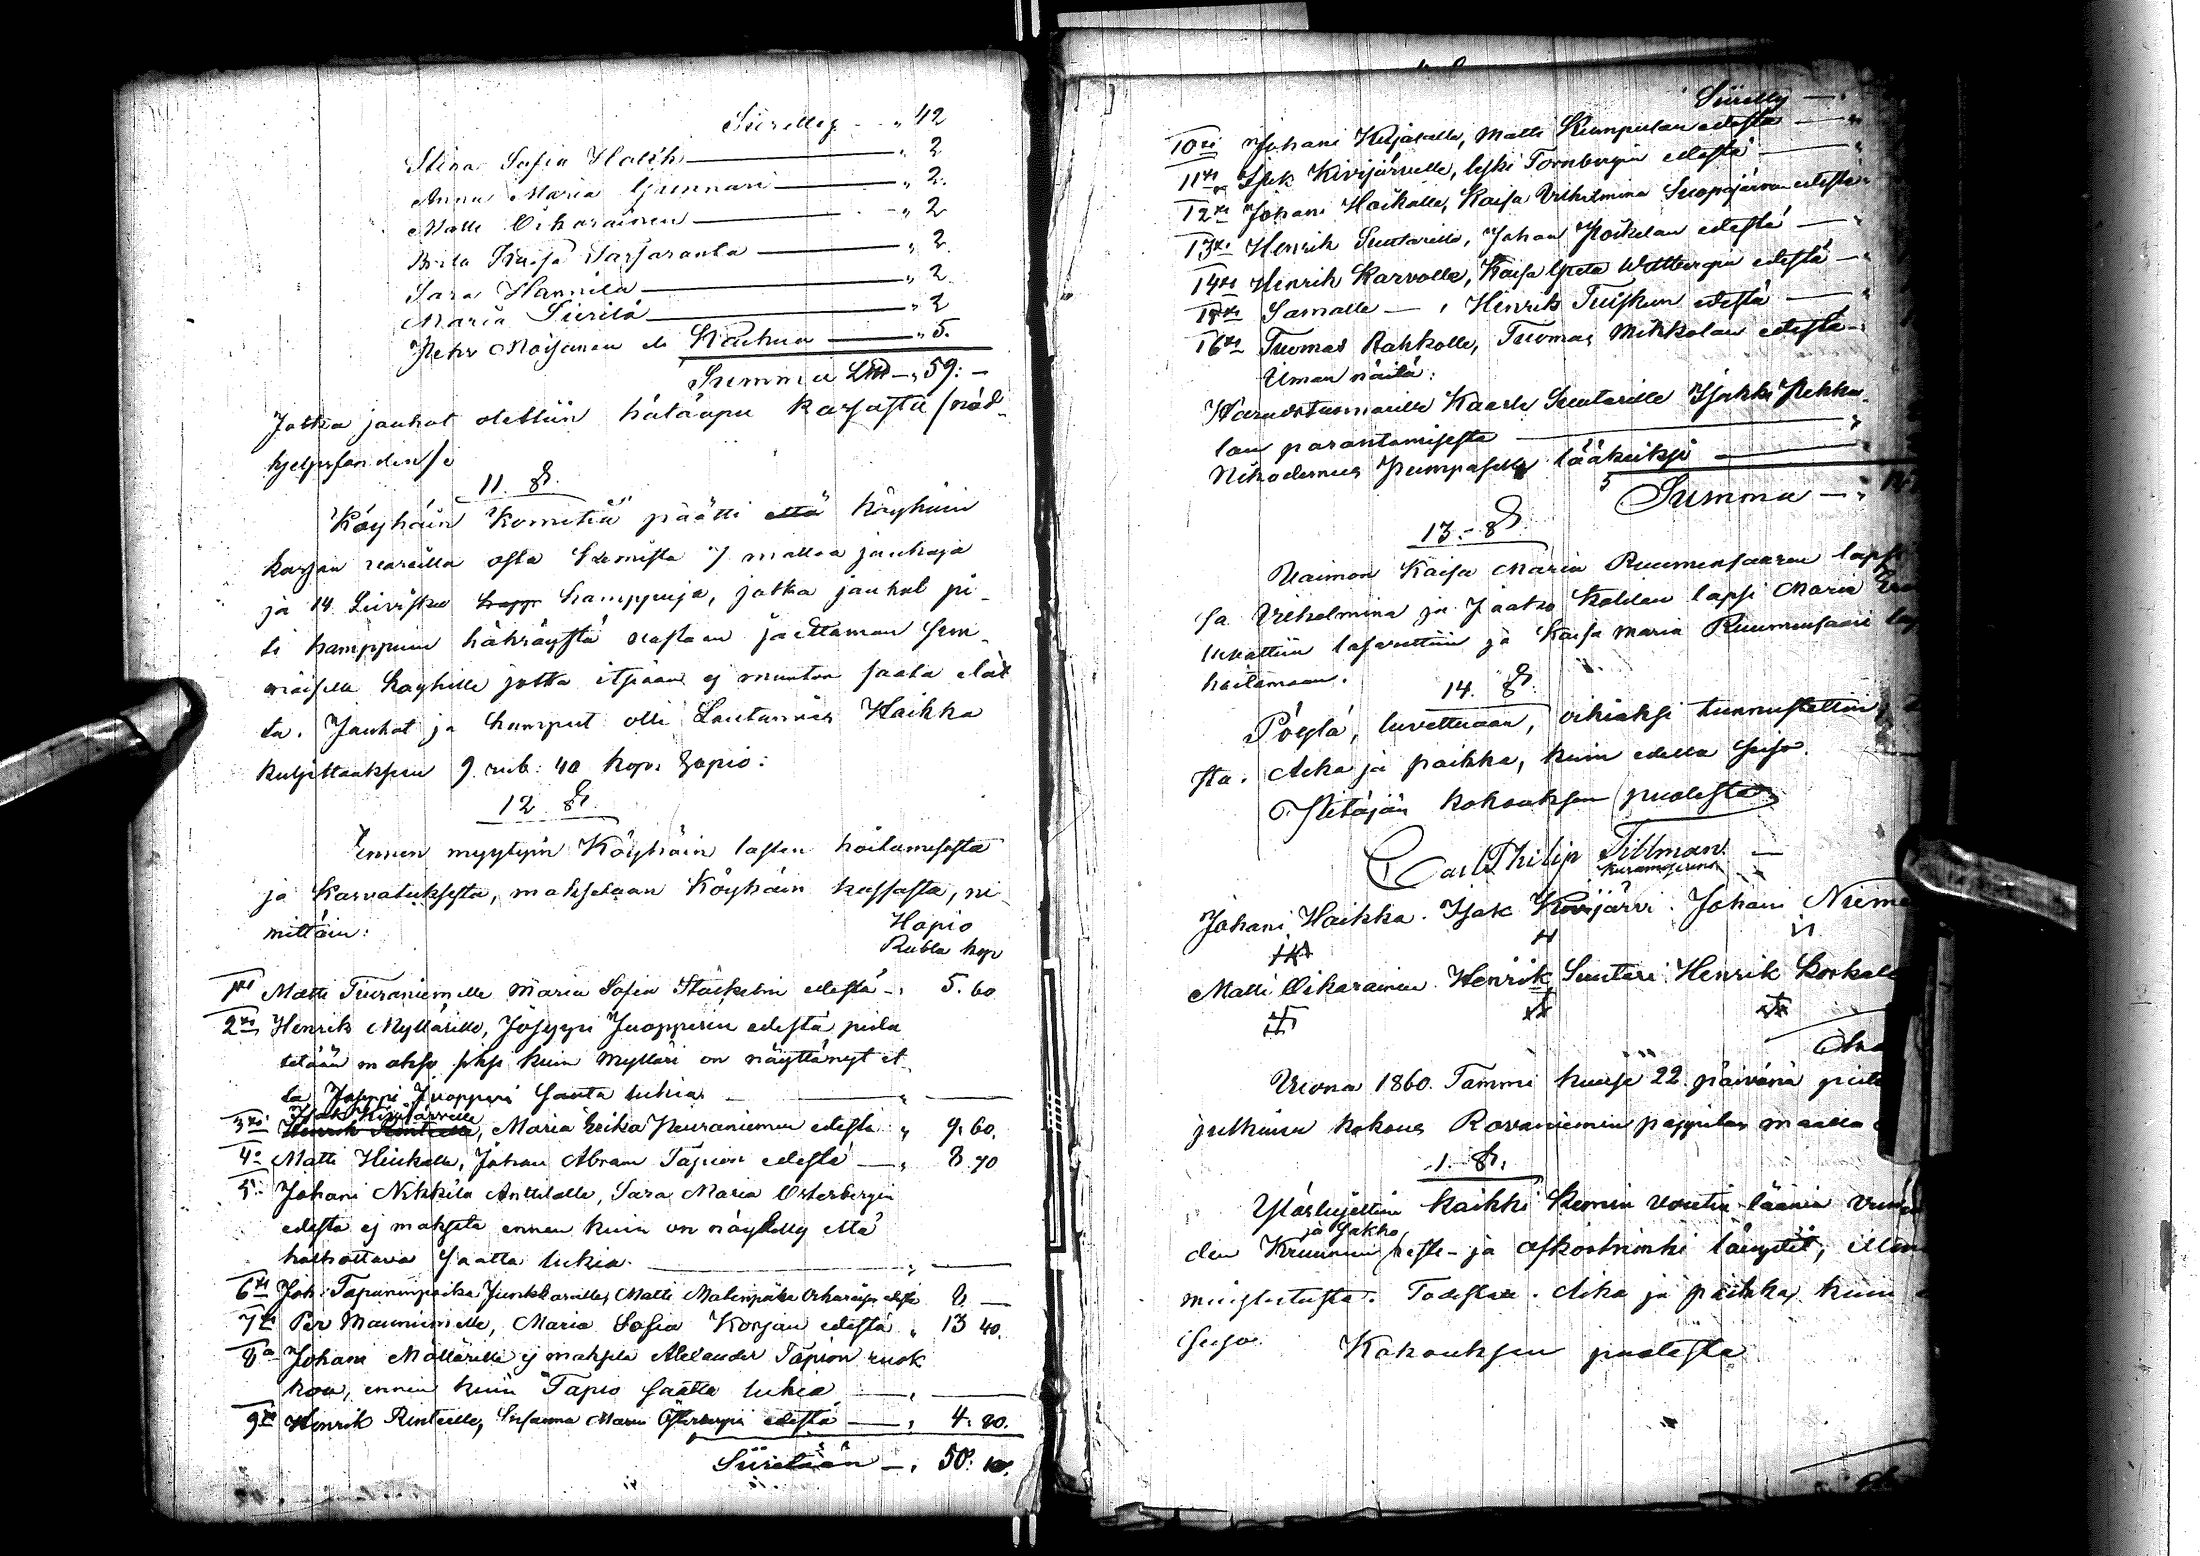 Siirettg — „ 42
Stina Sofia Holck — „ 2
Anna Maria Gunnari — „ 2.
Matti Oikarainen — „ 2
Brita Kaisa Sarjaranta — „ 2
Sara Hannila — „ 2
Maria Siirilä — „ 2
Petr Moisanen eli Kauhua — „ 5.
Summa L℔ — „ 59: —
Jotka jauhot otettiin hätäapu kassasta /nöd-
hjelpsfonden/e
11. §.
Köyhäin Komitia päätti että köyhäin
kassan varoilla osta Kemistä 7 mattoa jauhoja
ja 14 Leiviskä hamppuja, jotka jauhot pi-
ti hamppuin häkräystä vastaan jaettaman sem-
moisille köyhille jotka itsiään ej muuton saata elät
tä. Jauhot ja hamput olli Lautamies Haikka
kuljettaaksen 9 rub: 40 kop: hopio:
12 §.
Ennen myytyin Köyhäin lasten hoitamisesta
ja kasvatuksesta, maksetaan Köyhäin kassasta, ni-
mittäin:
Hopio
Rubla kop
1ksi Matti Tuiraniemelle Maria Sofia Ståhelin edestä — „ 5. 60
2ksi Henrik Myllärille, Joseppi Juopperin edestä, pidä
tetään makso siksi kuin Mylläri on näyttänyt et-
tä Joseppi Juopperi saata lukia — „ —
Isak Kivijärvelle
3ksi Henrik Rinteelle, Maria Erika Peuraniemen edestä „ 9. 60.
4o Matti Hiukalle, Johan Abram Tapion edestä — „ 8. 70
5: Johani Nikkilä Anttilalle, Sara Maria Österbergin
edestä ej makseta ennen kuin on näytetty että
holhottava saatta lukia — „ —
6ksi Joh: Tapaninpoika Junkkarille, Matti Matinpoika Oikaraisen edestä 8 —
7ksi Per Mauniemelle, Maria Sofia Korjan edestä „ 13 40.
8a Johani Möllärille ej makseta Alexander Tapion ruok
kon, ennen kuin Tapio saatta lukia — „ —
9ksi Henrik Rinteelle, Susanna Maria Österbergin edestä — „ 4. 80.
Siiretään — „ 50: 10.
Siiretty — „
10ksi Johani Kujalalle, Matti Kumpulan edestä — „
11ksi Isak Kivijärvelle, leski Tornbergin edestä — „
12ksi Johani Haikalle, Kaisa Vilhelmina Suopajärven edestä „
13ksi Henrik Suutarille, Johan Poikelan edestä — „
14ksi Henrik Karvolle, Kaisa Greta Wittbergin edestä — „
15ksi Samalle — , Henrik Tuiskun edestä — „
16ksi Tuomas Rahkolle, Tuomas Mikkolan edestä — „
Ilman näitä:
Haavästuomarille Kaarle Suutarille Isakki Pekka-
lan parantamisesta — „
Nikodemus Pumpaselle lääkeiksi — „
Summa — „
13. §.
Vaimon Kaisa Maria Ruumensaaren lapsi
sa Vilhelmina ja Jaako Kolilan lapsi Maria
luvattiin lasarettiin ja Kaisa Maria Ruumensaari
hoitamaan.
14. §.
Pöytä, luvettuaan, oikiaksi tunnustettiin,
sta. Aika ja paikka, kuin edellä seiso.
Pitäjän kokouksen puolesta
Carl Philip Tillman.
Johani Haikka. Isak Kivijärvi. Johani
Matti Oikarainen. Henrik Suutari. Henrik
Vuona 1860. Tammi kuuse 22. päivänä
julkinen kokous Rovaniemin pappilan maalla
1. §.
Ylöslujettiin kaikki Kemin voutin läänin
ja jakko
den Kruunun peste- ja oskostrinki längdit,
muistutusta. Todistaa. Aika ja paikka, kuin
seiso. Kokouksen puolesta